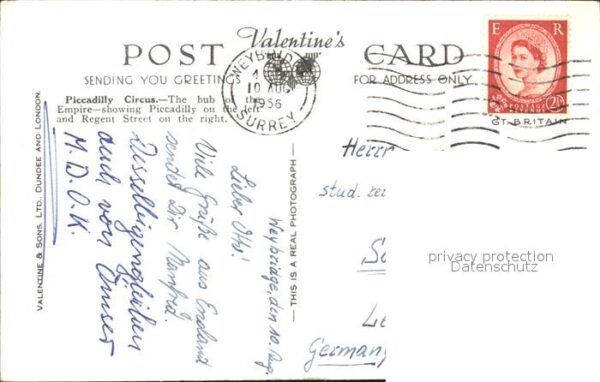 Valentine's
POST CARD
SENDING YOU GREETING
FOR ADDRESS ONLY
Piccadilly Circus.—The hub of the
Empire—showing Piccadilly on the left
and Regent Street on the right.
WEYBRIDGE
10 AUG
1956
SURREY
E R
POSTAGE
2½
GT BRITAIN
VALENTINE & SONS, LTD., DUNDEE AND LONDON.
— THIS IS A REAL PHOTOGRAPH —
Weybridge, den 10. Aug.
Lieber Otto!
Viele Grüße aus England
sendet Dir Manfred.
auch von
M.D.O.K.
Herrn
stud.
Germany
privacy protection
Datenschutz